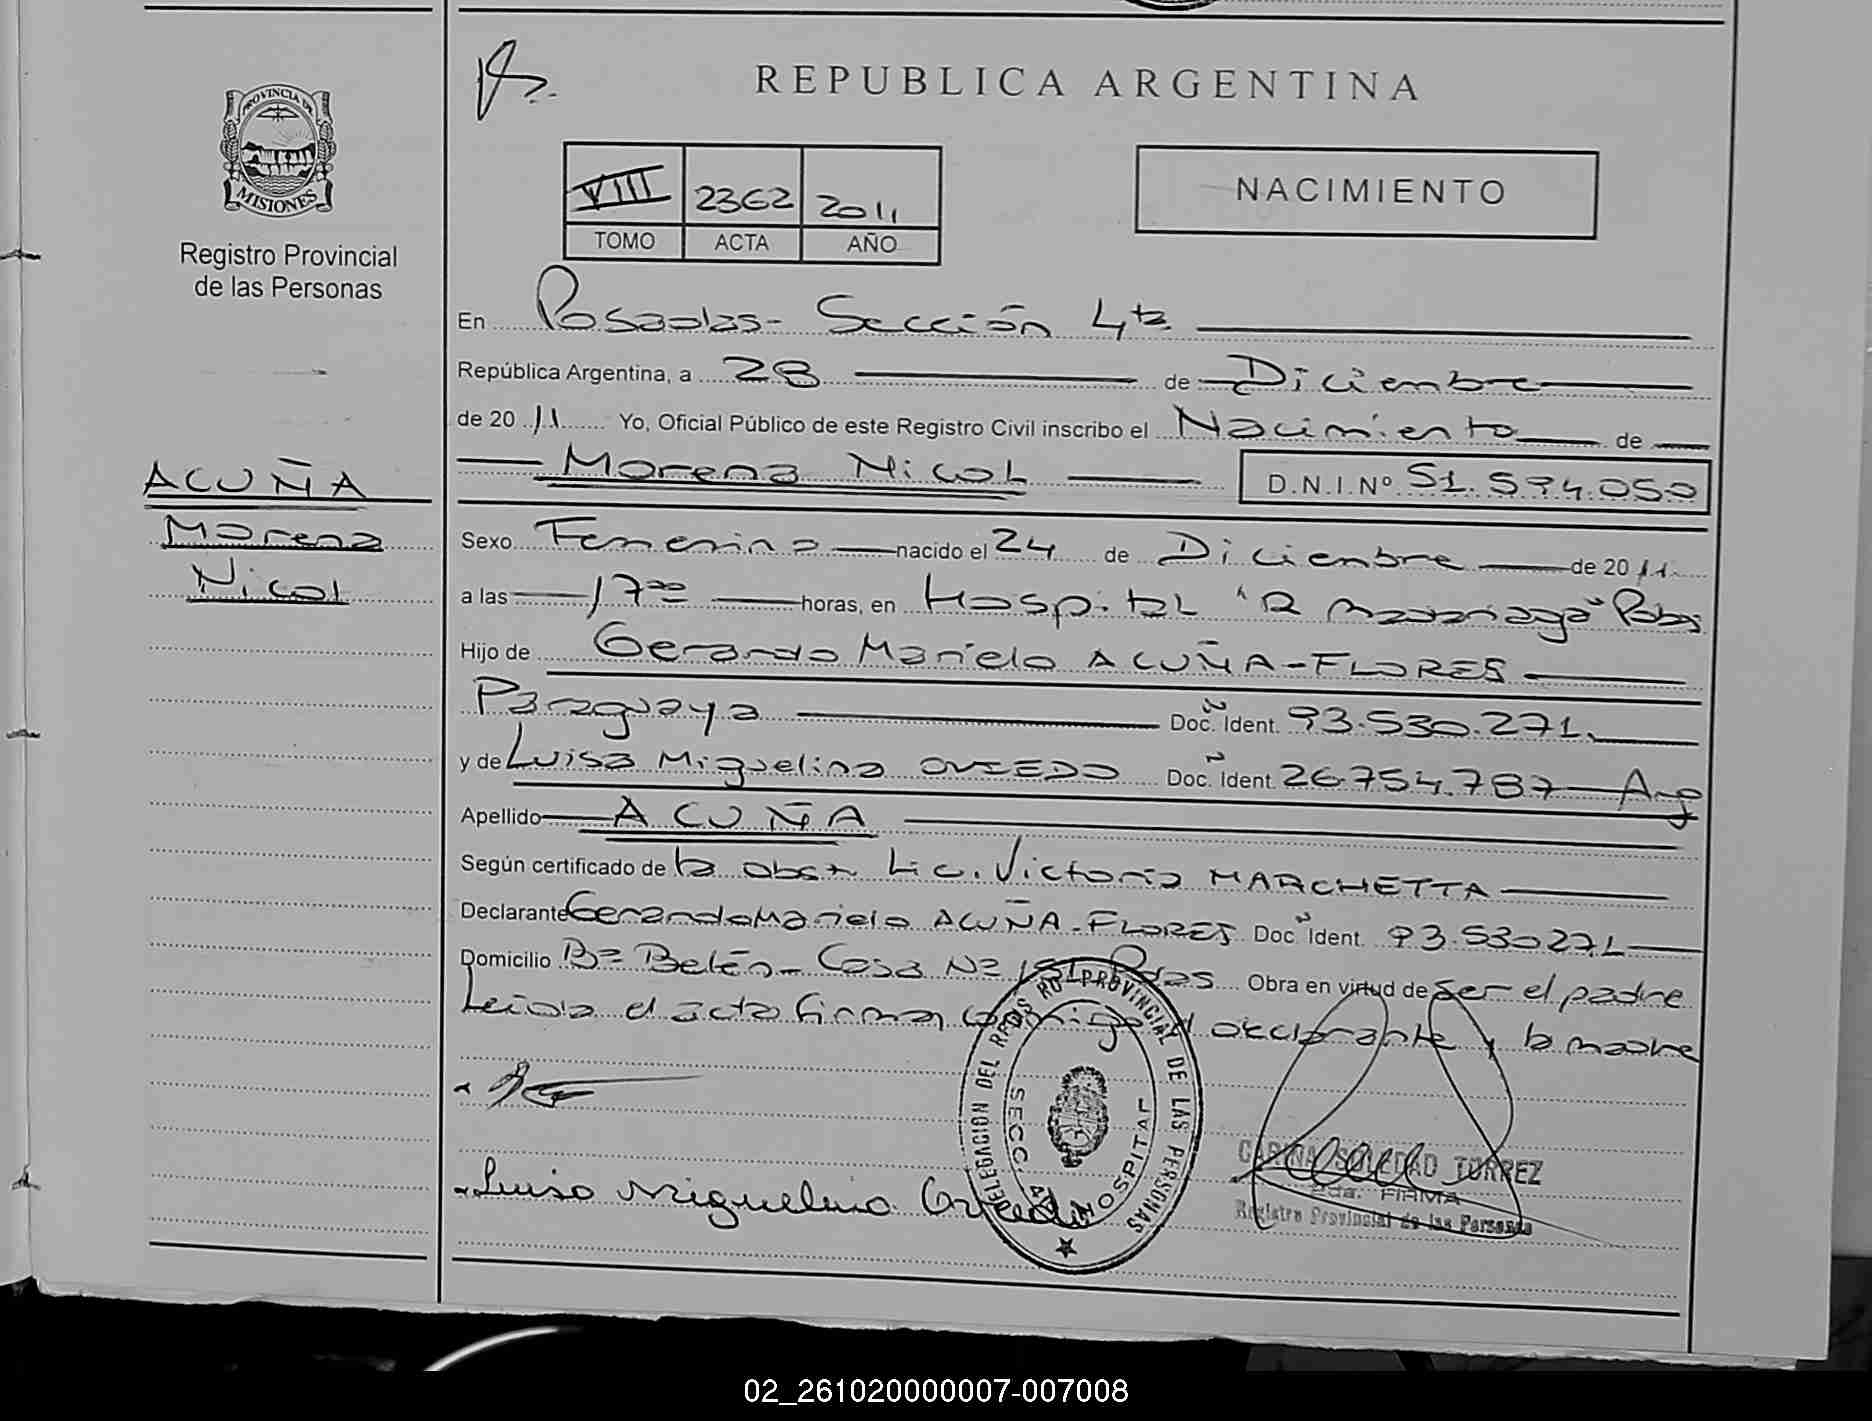 REPUBLICA ARGENTINA
PROVINCIA DE
MISIONES
Registro Provincial
de las Personas
VIII 2362 2011
TOMO ACTA AÑO
NACIMIENTO
En Posadas - Sección 4ta
República Argentina, a 28 de Diciembre
de 2011 Yo, Oficial Público de este Registro Civil inscribo el Nacimiento de
Morena Nicol D.N.I.Nº 51.594.050
ACUÑA
Morena
Nicol
Sexo Femenino nacido el 24 de Diciembre de 2011
a las 17 00 horas, en Hospital "R Madariaga" Pdas
Hijo de Gerardo Marielo ACUÑA-FLORES
Paraguaya Doc. Ident. 93.530.271.
y de Luisa Miguelina OVIEDO Doc. Ident. 26.754.787 Arg
Apellido ACUÑA
Según certificado de la obst Lic. Victoria MARCHETTA
Declarante Gerardo Marielo ACUÑA-FLORES Doc Ident. 93.530271
Domicilio Bº Belén - Casa Nº 181 Pdas Obra en virtud de ser el padre
Leida el acta firman conmigo el declarante y la madre
Luisa Miguelina Oviedo
DELEGACION DEL REGISTRO PROVINCIAL DE LAS PERSONAS
SECC. 4ta HOSPITAL
CARINA SOLEDAD TORREZ
2da. FIRMA
Registro Provincial de las Personas
02_261020000007-007008